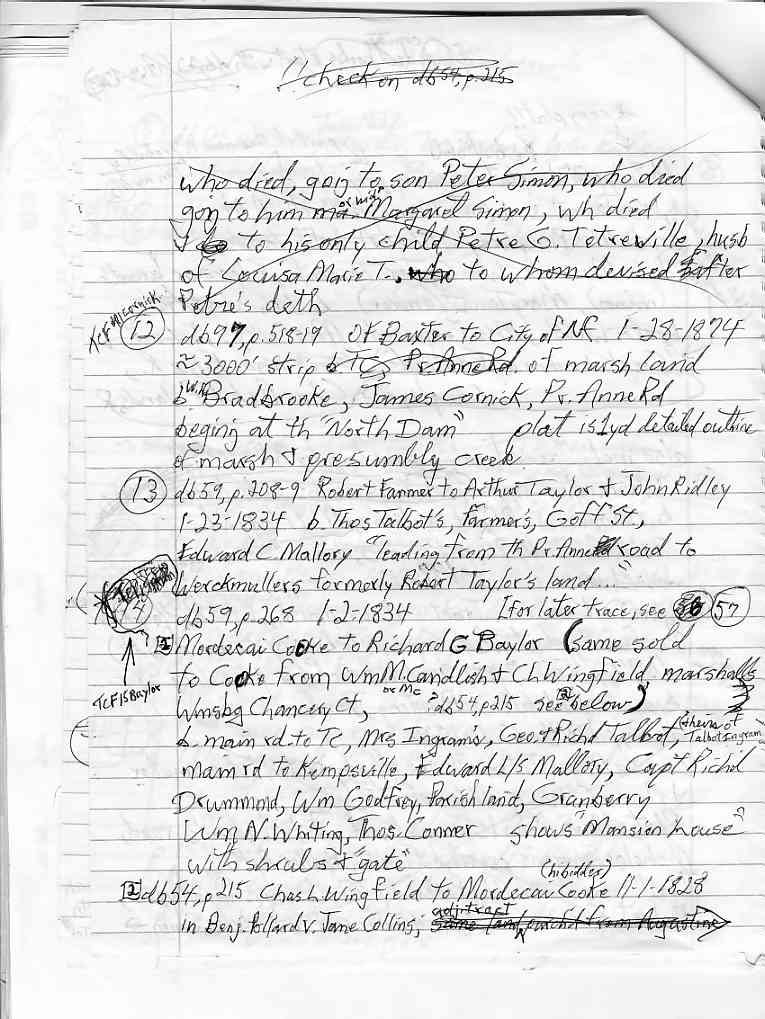 !! check on db54, p.215
who died, goig to son Peter Simon, who died
goig to him or wid. Margaret Simon, wh died
& to his only child Petre G. Tetreville, husb
of Louisa Marie T., who to whom devised after
Petre's deth
TCF Cornick
12 db97, p.518-19 Of Baxter to City of Nf 1-28-1874
≈ 3000' strip b TCs Pr. Anne Rd. of marsh land
b Wm Bradbrooke, James Cornick, Pr. Anne Rd
beging at th "North Dam" plat is 1yd detailed outline
of marsh & presumbly creek
13 db59, p.208-9 Robert Farmer to Arthur Taylor & John Ridley
1-23-1834 b. Thos Talbot's, Farmer's, Goff St,
Edward C. Mallory "leading from th Pr. Anne road to
Werckmullers formerly Robert Taylor's land..."
db59, p.268 1-2-1834 [for later trace, see 57
1 Mordecai Cooke to Richard G Baylor (same sold
to Cooke from Wm McCandlish & Ch Wingfield, marshalls
or Mc
TCF 15 Baylor
Wmsbg Chancery Ct, ?db54, p215 see 2 below)
b. main rd. to TC, Mrs Ingram's, Geo. & Richd Talbot, (heirs of Talbot & Ingram
main rd to Kempsville, Edward L/s Mallory, Capt Richd
Drummond, Wm Godfrey, Parish land, Granberry
Wm N. Whiting, Thos. Conner shows "Mansion house"
with shrubs & "gate"
(hibidder)
2 db54, p215 Chas h Wingfield to Mordecai Cooke 11-1-1828
in Benj. Pollard v. Jane Collins, adj. tract same land, purchd from Augustine